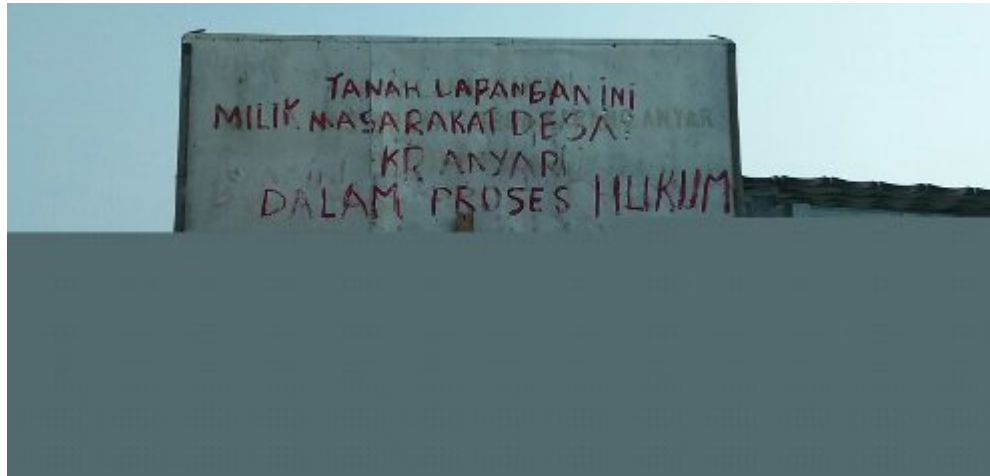 TANAH LAPANGAN INI
MILIK MASARAKAT DESA
KR ANYAR
DALAM PROSES HUKUM